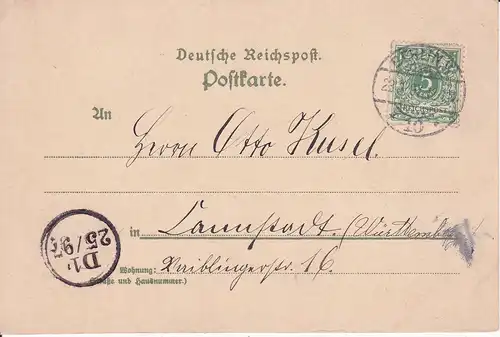 Deutsche Reichspost.
Postkarte.
An
Herrn Otto Kusel.
in Cannstadt. (Württemberg)
Wohnung: Waiblingerstr. 16.
(Straße und Hausnummer.)
5
10
D1
25/97